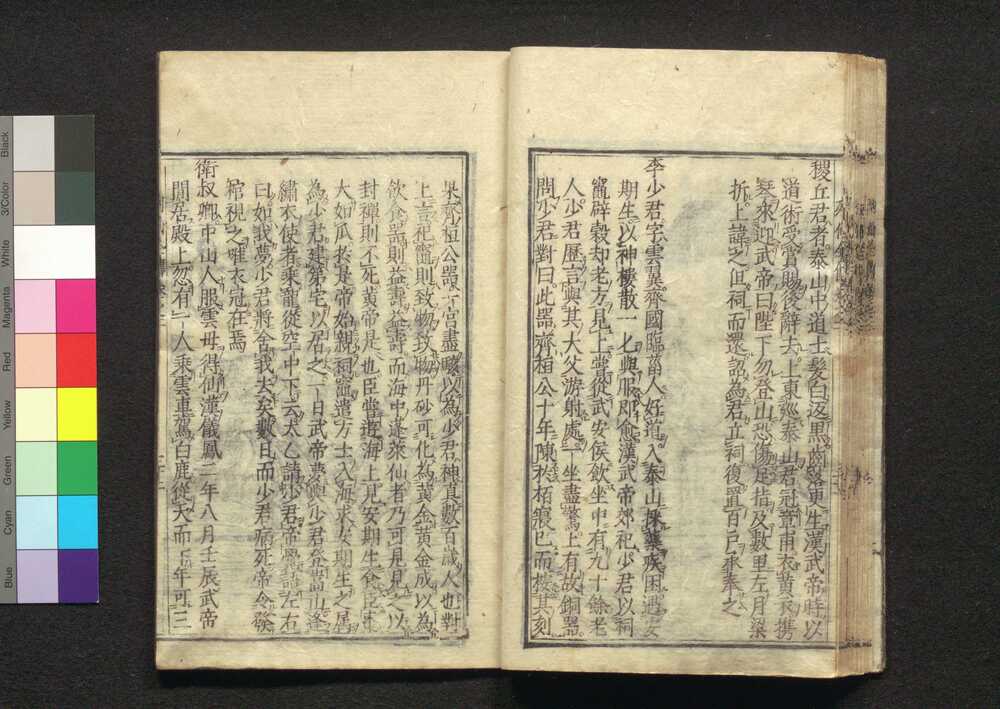 稷丘君者泰山中道士髮白返黑齒落更生漢武帝時以
道術受賞賜後辭去上東巡泰山君冠章甫衣黃衣携
琴來迎武帝曰陛下勿登山恐傷足指及數里左月梁
折上諱之但祠而還詔為君立祠復置百戶承奉之
李少君字雲翼齊國臨菑人好道入泰山採藥疾困遇安
期生以神樓散一匕與服即愈漢武帝郊祀少君以祠
竈辟穀却老方見上嘗從武安侯飲坐中有九十餘老
人少君歷言與其大父游射處一坐盡驚上有故銅器
問少君對曰此器齊桓公十年陳於栢寢已而按其刻
果齊桓公器一宮盡駭以為少君神真數百歲人也對
上言祀竈則致物致物丹砂可化為黃金黃金成以為
飲食器則益壽益壽而海中蓬萊仙者乃可見見之以
封禪則不死黃帝是也臣嘗遊海上見安期生食臣棗
大如瓜於是帝始親祠竈遣方士入海求安期生之屬
為少君建第宅以居之一日武帝夢與少君登嵩山逢
繡衣使者乘龍從空中下云太乙請少君帝覺語左右
曰如我夢少君將舍我去矣數日而少君病死帝令發
棺視之唯衣冠在焉
衛叔卿中山人服雲母得仙漢儀鳳二年八月壬辰武帝
閒居殿上忽有一人乘雲車駕白鹿從天而下年可三
Black
3/Color
White
Magenta
Red
Yellow
Green
Cyan
Blue